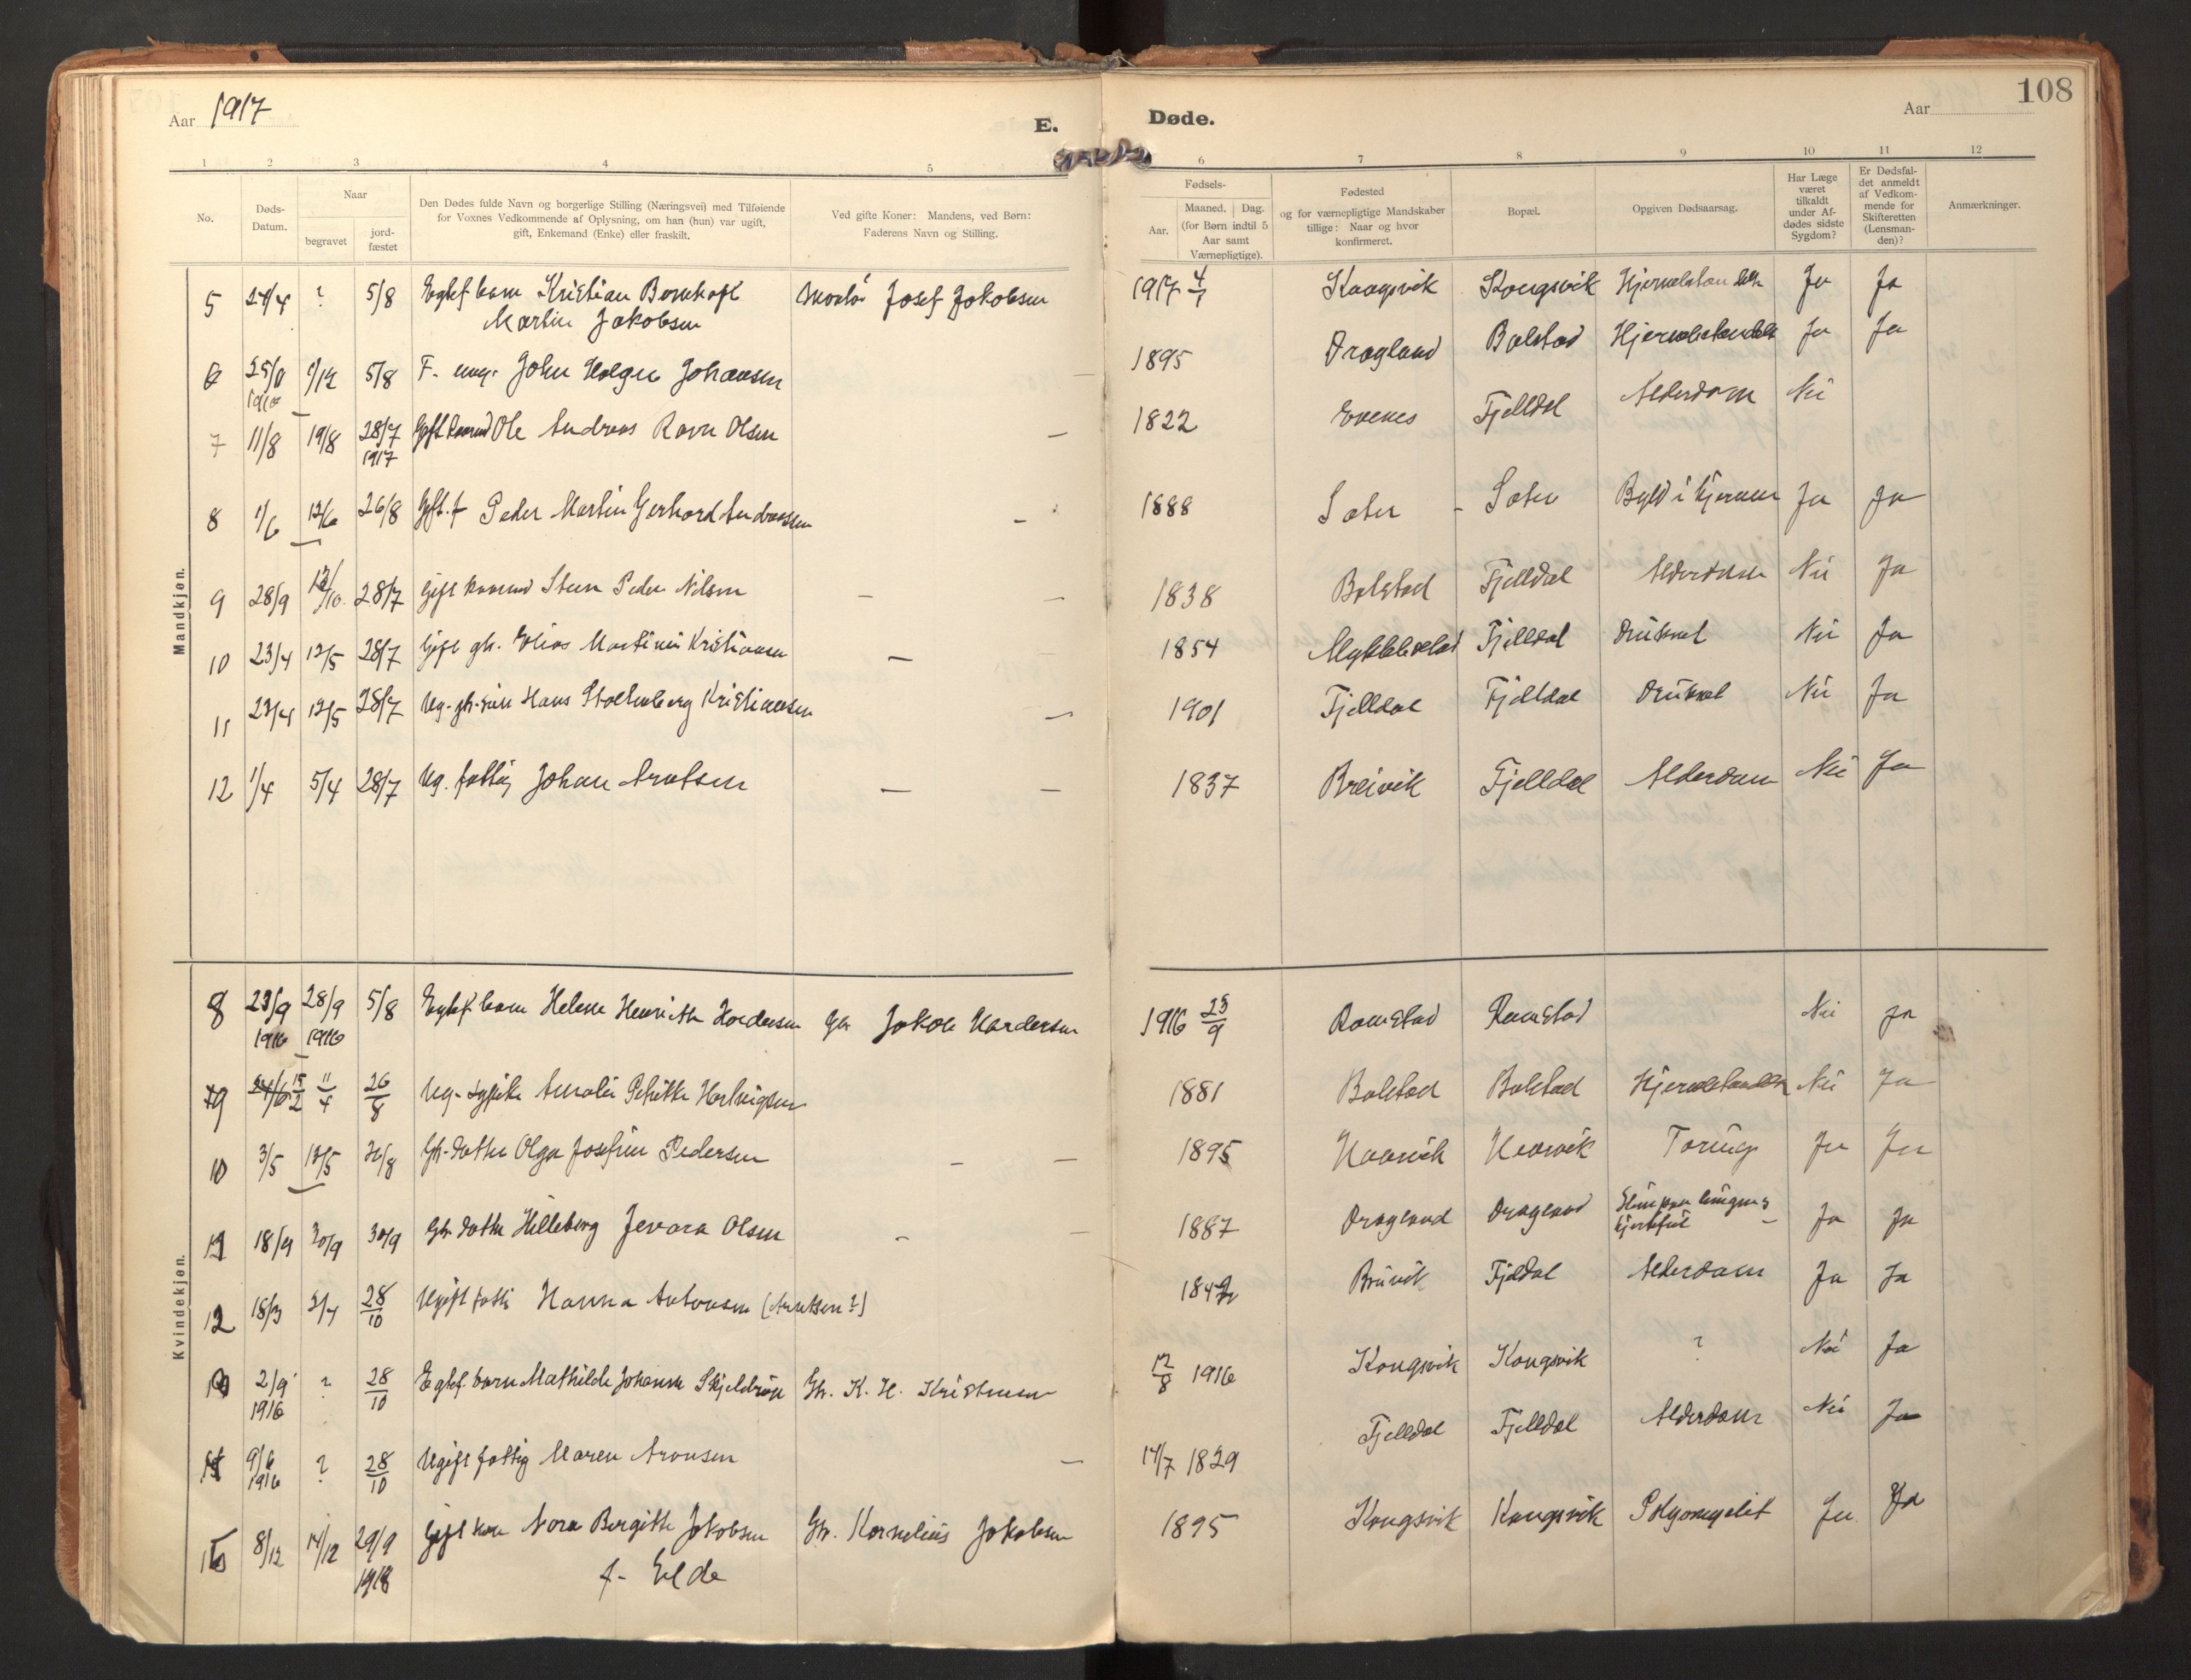 108
Aar 1917
E.
Døde.
Aar
1 2 3 4 5 6 7 8 9 10 11 12
No.
Døds-Datum.
Naar
begravet
jord-fæstet
Den Dødes fulde Navn og borgerlige Stilling (Næringsvei) med Tilføiende
for Voxnes Vedkommende af Oplysning, om han (hun) var ugift,
gift, Enkemand (Enke) eller fraskilt.
Ved gifte Koner: Mandens, ved Børn:
Faderens Navn og Stilling.
Fødsels-
Aar.
Maaned. Dag.
(for Børn indtil 5
Aar samt
Værnepligtige).
Fødested
og for værnepligtige Mandskaber
tillige: Naar og hvor
konfirmeret.
Bopæl.
Opgiven Dødsaarsag.
Har Læge
været
tilkaldt
under Af-
dødes sidste
Sygdom?
Er Dødsfal-
det anmeldt
af Vedkom-
mende for
Skifteretten
(Lensman-
den)?
Anmærkninger.
Mandkjøn.
5 24/4 ? 5/8 Egtef barn Kristian Bernhoft Josef Jakobsen 1917 4/1 Kongsvik Kongsvik Ja Ja
Martin Jakobsen
6 1916 5/8 F. ung. John Holger Johansen 1895 Dragland Bolstad Ja Ja
7 11/8 19/8 28/7 Ole Andreas Ravn Olsen — 1822 Evenes Fjelldal Alderdom Nei
1917
8 1/6 12/6 26/8 Gift. f Peder Martin Gerhard Andreassen — 1888 Sater - Sater Byld i hjernen Ja Ja
9 28/9 12/10 28/7 Gift Steen Peder Nilsen — — 1838 Bolstad Fjelldal Alderdom Nei Ja
10 23/4 12/5 28/7 Gift gb. Elias Martinus Kristiansen — 1854 Fjelldal Druknet Nei Ja
11 23/4 12/5 28/7 Ug. gb. søn Hans Stoltenberg Kristiansen — 1901 Fjelldal Fjelldal Druknet Nei Ja
12 1/4 5/4 28/7 Ug. fattig Johan Arntsen — — 1837 Breivik Fjelldal Alderdom Nei Ja
Kvindekjøn.
8 23/9 28/9 5/8 Egtef barn Helene Gb Jakob Hardersen 1916 23/9 Ramstad Ramstad Nei Ja
1916 1916
9 15/2 11/4 26/8 Ug. Amalie Petrikke Hartvigsen 1881 Bolstad Bolstad Nei Ja
10 3/5 12/5 26/8 Gb. datter Olga Josefine Pedersen — — 1895 Ja Ja
11 18/9 30/9 30/9 Gb datter Hilleborg Jevora Olsen - — 1887 Dragland Dragland Ja Ja
12 18/3 5/4 28/10 Ugift fatti Hanna Antonsen (Arntsen?) Fjeldal Alderdom Ja Ja
2/9 ? 28/10 Egtef. barn Mathilde Johanna Gb. K. H. Kristensen 12/8 1916 Kongsvik Kongsvik ? Nei Ja
1916
9/6 ? 28/10 Ugift fattig Maren Aronsen — 14/7 1829 Fjelldal Fjelldal Alderdom Nei Ja
1916
8/12 14/12 29/9 Gift kone Nora Bergitte Jakobsen Gb. Kornelius Jakobsen 1895 Kongsvik Kongsvik Ja Ja
1918 f. Elde